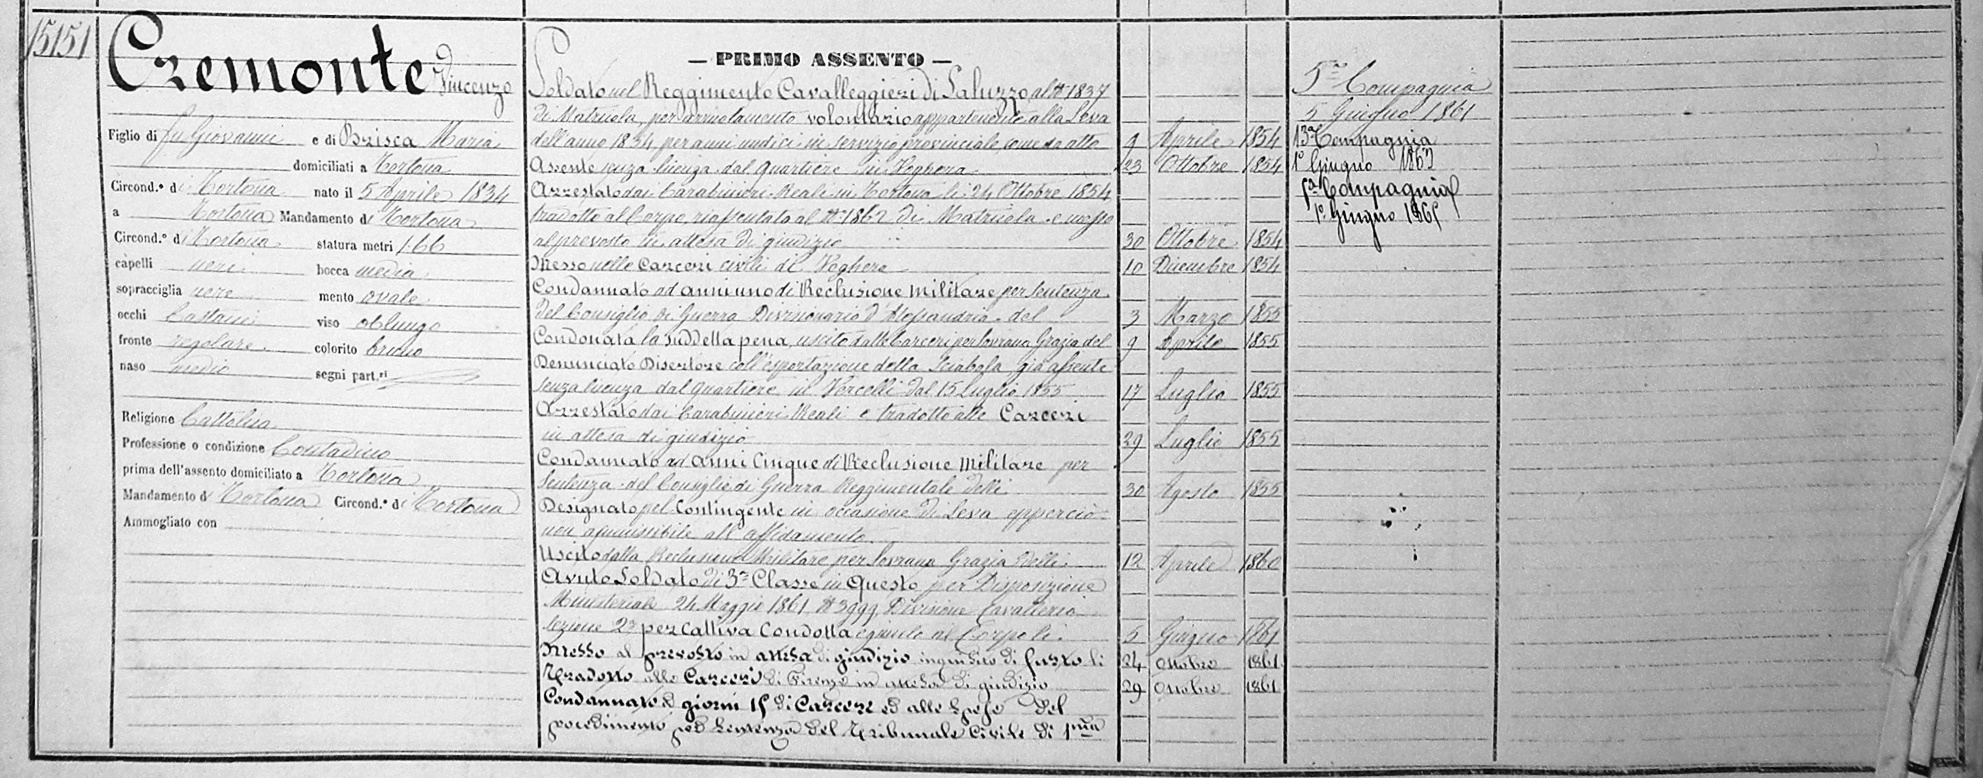 15151
Cremonte Vincenzo
Figlio di fu Giovanni e di Brisca Maria
domiciliati a Tortona
Circond.º di Tortona nato il 5 Aprile 1834
a Tortona Mandamento di Tortona
Circond.º di Tortona statura metri 1.66
capelli neri bocca media
sopracciglia nere mento ovale
occhi Castani viso oblungo
fronte regolare colorito bruno
naso medio segni part.ri
Religione Cattolica
Professione o condizione Contadino
prima dell'assento domiciliato a Tortona
Mandamento di Tortona Circond.º di Tortona
Ammogliato con
— PRIMO ASSENTO —
Soldato nel Reggimento Cavalleggieri di Saluzzo, al Nº 1837
di Matricola, per arruolamento volontario appartenente alla Leva
dell'anno 1834, per anni undici in servizio provinciale come da atto 9 Aprile 1854
Assente senza licenza dal Quartiere in Voghera 23 Ottobre 1854
Arrestato dai Carabinieri Reali in Tortona li 24 Ottobre 1854
tradotto al Corpo, riassentato al Nº 1862 di Matricola e messo
al prevosto in attesa di giudizio 30 Ottobre 1854
Messo nelle Carceri civili di Voghera 10 Dicembre 1854
Condannato ad anni uno di Reclusione Militare per sentenza
del Consiglio di Guerra Divisionario d'Alessandria del 3 Marzo 1855
Condonata la suddetta pena, uscito dalle Carceri per Sovrana Grazia del 9 Aprile 1855
Denunciato Disertore coll'esportazione della Sciabola, già assente
senza licenza dal Quartiere in Vercelli dal 15 Luglio 1855 17 Luglio 1855
Arrestato dai Carabinieri Reali e tradotto alle Carceri
in attesa di giudizio 29 Luglio 1855
Condannato ad anni Cinque di Reclusione Militare per
sentenza del Consiglio di Guerra Reggimentale delli 30 Agosto 1855
Designato pel Contingente in occasione di Leva epperciò
non ammissibile all'affidamento.
Uscito dalla Reclusione Militare per Sovrana Grazia delli 12 Aprile 1860
Avuto Soldato di 3ª Classe in Questo per Disposizione
Ministeriale 24 Maggio 1861 Nº 3999, Divisione Cavalleria
Sezione 2ª per Cattiva Condotta e giunto al Corpo li. 5 Giugno 1861
Messo al prevosto in attesa di giudizio inquisito di furto li 24 Ottobre 1861
Tradotto alle Carceri di Firenze in attesa di giudizio 29 Ottobre 1861
Condannato a giorni 15 di Carcere ed alle spese del
procedimento per sentenza del Tribunale Civile di 1ma
5ª Compagnia
5 Giugno 1861
13ª Compagnia
1º Giugno 1863
Compagnia
1º Giugno 1865